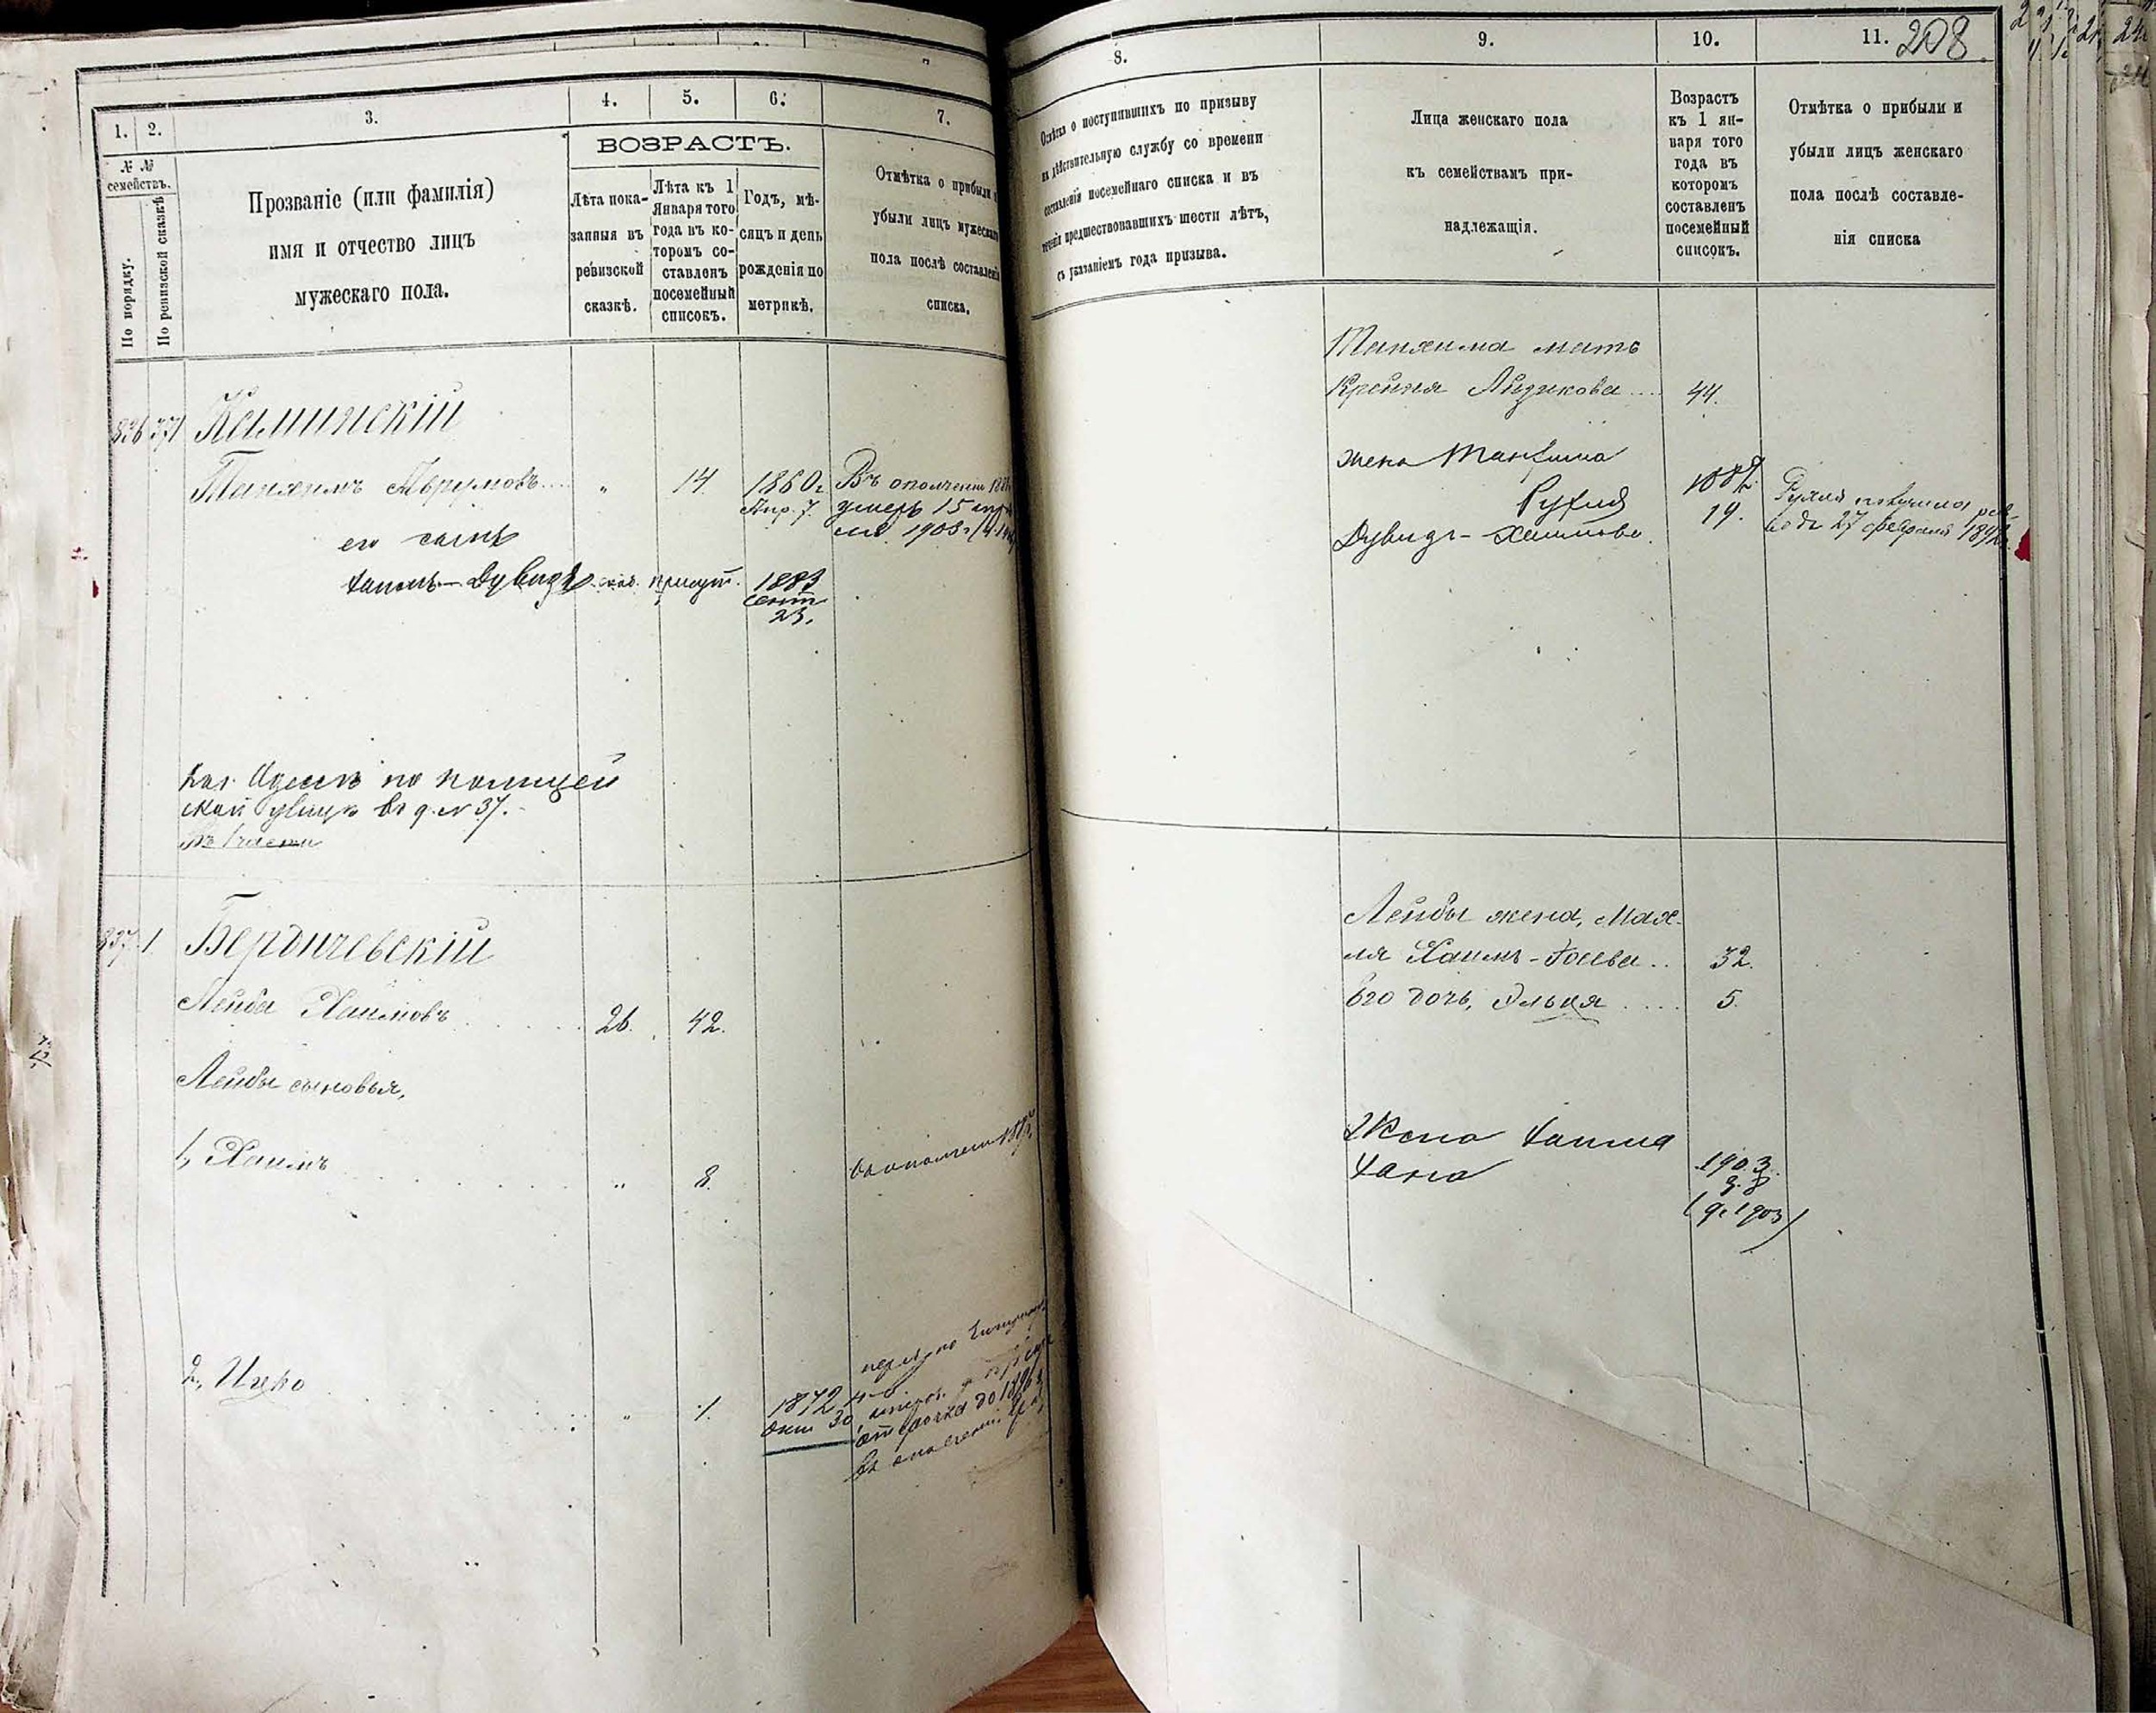 1.
2.
3.
4.
5.
6.
7.
№ №
семействъ.
По порядку.
По ревизской сказкѣ
Прозваніе (или фамилія)
имя и отчество лицъ
мужескаго пола.
ВОЗРАСТЪ.
Лѣта пока-
занныя въ
ревизской
сказкѣ.
Лѣта къ 1
Января того
года въ ко-
торомъ со-
ставленъ
посемейный
списокъ.
Годъ, мѣ-
сяцъ и день
рожденія по
метрикѣ.
Отмѣтка о прибыли и
убыли лицъ мужескаго
пола послѣ составленія
списка.
836 371
Танхимъ Абрумовъ
" 14. 1860 г.
Апр. 7.
умеръ 15 апр
1908 г.
его сынъ
Хаимъ-Дувидъ
1883
сент
23.
улицѣ въ д. № 37.
837 1
Бердичевскій
Лейба Хаимовъ 26. 42.
Лейбы сыновья,
1, Хаимъ " 8.
2, Ицко " 1. 1872
окт 30
отсрочка до 1896
8.
9.
10.
11.
208
Отмѣтка о поступившихъ по призыву
на дѣйствительную службу со времени
составленія посемейнаго списка и въ
теченіи предшествовавшихъ шести лѣтъ,
съ указаніемъ года призыва.
Лица женскаго пола
къ семействамъ при-
надлежащія.
Возрастъ
къ 1 ян-
варя того
года въ
которомъ
составленъ
посемейный
списокъ.
Отмѣтка о прибыли и
убыли лицъ женскаго
пола послѣ составле-
нія списка
Танхима мать
Крейня Айзикова 44.
жена Танхима
Рухля
Дувидъ-Хаимова 19.
27 февраля
Лейбы жена, Мах-
ля Хаимъ-Іосева 32.
Его дочь, Элькя 5.
Жена Хаима
Хана 1903